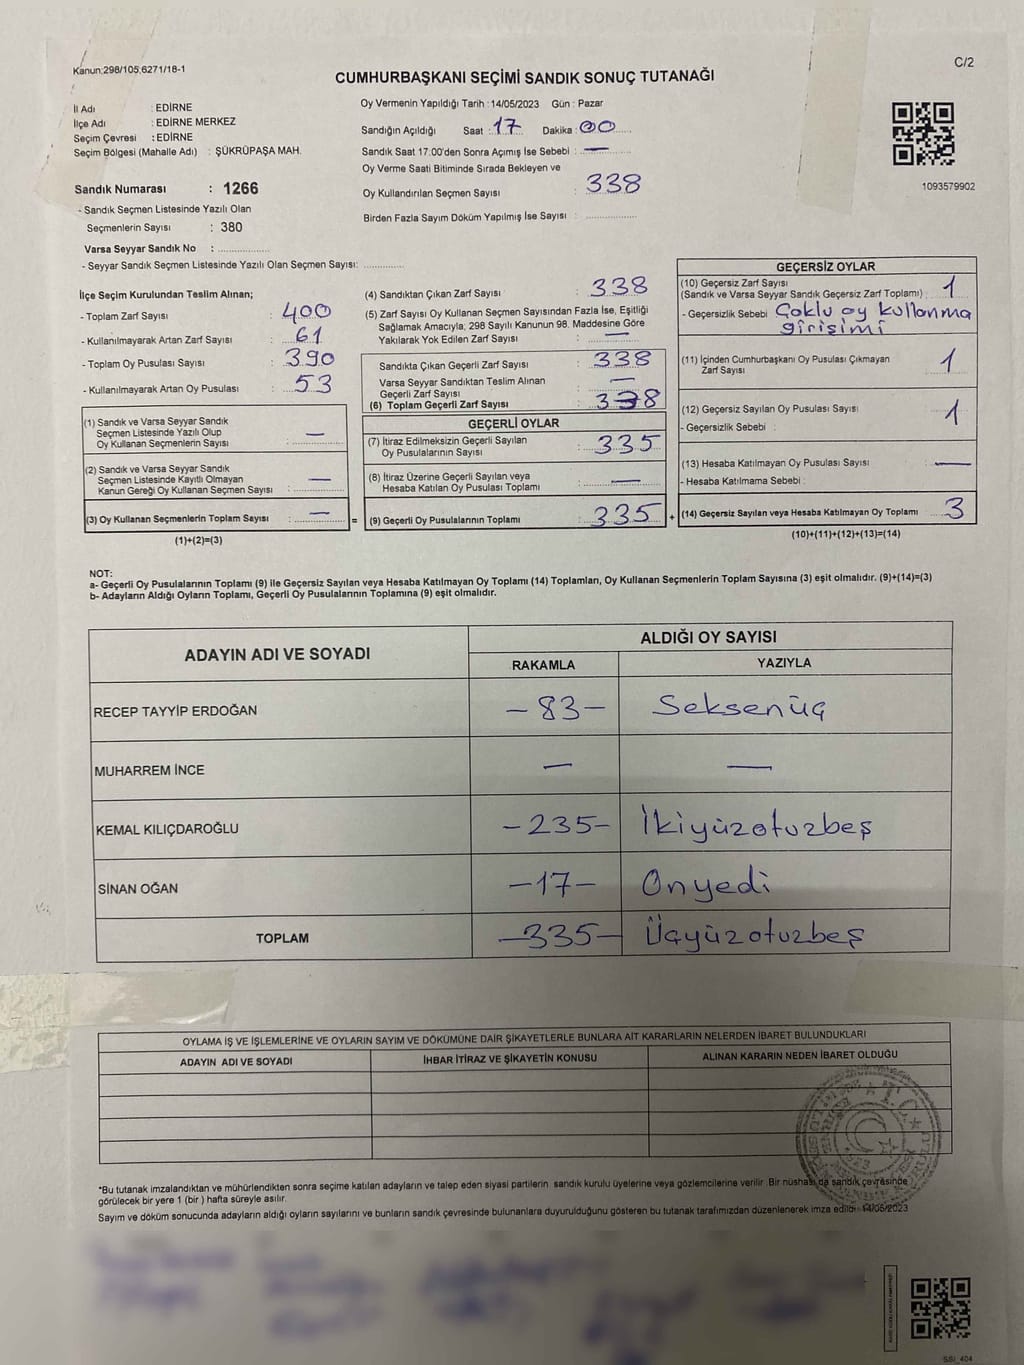 Kanun;298/105;6271/18-1
C/2
CUMHURBAŞKANI SEÇİMİ SANDIK SONUÇ TUTANAĞI
İl Adı : EDİRNE
İlçe Adı : EDİRNE MERKEZ
Seçim Çevresi : EDİRNE
Seçim Bölgesi (Mahalle Adı) : ŞÜKRÜPAŞA MAH.
Sandık Numarası : 1266
- Sandık Seçmen Listesinde Yazılı Olan
Seçmenlerin Sayısı : 380
Varsa Seyyar Sandık No : ................
- Seyyar Sandık Seçmen Listesinde Yazılı Olan Seçmen Sayısı: ............
Oy Vermenin Yapıldığı Tarih : 14/05/2023 Gün : Pazar
Sandığın Açıldığı Saat : 17 Dakika : 00
Sandık Saat 17:00'den Sonra Açımış İse Sebebi : —
Oy Verme Saati Bitiminde Sırada Bekleyen ve
Oy Kullandırılan Seçmen Sayısı : 338
Birden Fazla Sayım Döküm Yapılmış İse Sayısı : ................
1093579902
İlçe Seçim Kurulundan Teslim Alınan;
- Toplam Zarf Sayısı : 400
- Kullanılmayarak Artan Zarf Sayısı : 61
- Toplam Oy Pusulası Sayısı : 390
- Kullanılmayarak Artan Oy Pusulası : 53
(1) Sandık ve Varsa Seyyar Sandık
Seçmen Listesinde Yazılı Olup
Oy Kullanan Seçmenlerin Sayısı : —
(2) Sandık ve Varsa Seyyar Sandık
Seçmen Listesinde Kayıtlı Olmayan
Kanun Gereği Oy Kullanan Seçmen Sayısı : —
(3) Oy Kullanan Seçmenlerin Toplam Sayısı : — =
(1)+(2)=(3)
(4) Sandıktan Çıkan Zarf Sayısı : 338
(5) Zarf Sayısı Oy Kullanan Seçmen Sayısından Fazla İse, Eşitliği
Sağlamak Amacıyla; 298 Sayılı Kanunun 98. Maddesine Göre
Yakılarak Yok Edilen Zarf Sayısı : —
Sandıkta Çıkan Geçerli Zarf Sayısı : 338
Varsa Seyyar Sandıktan Teslim Alınan
Geçerli Zarf Sayısı : —
(6) Toplam Geçerli Zarf Sayısı : 338
GEÇERLİ OYLAR
(7) İtiraz Edilmeksizin Geçerli Sayılan
Oy Pusulalarının Sayısı : 335
(8) İtiraz Üzerine Geçerli Sayılan veya
Hesaba Katılan Oy Pusulası Toplamı : —
(9) Geçerli Oy Pusulalarının Toplamı : 335 +
GEÇERSİZ OYLAR
(10) Geçersiz Zarf Sayısı
(Sandık ve Varsa Seyyar Sandık Geçersiz Zarf Toplamı) : 1
- Geçersizlik Sebebi : Çoklu oy kullanma
girişimi
(11) İçinden Cumhurbaşkanı Oy Pusulası Çıkmayan
Zarf Sayısı 1
(12) Geçersiz Sayılan Oy Pusulası Sayısı 1
- Geçersizlik Sebebi :
(13) Hesaba Katılmayan Oy Pusulası Sayısı —
- Hesaba Katılmama Sebebi :
(14) Geçersiz Sayılan veya Hesaba Katılmayan Oy Toplamı 3
(10)+(11)+(12)+(13)=(14)
NOT:
a- Geçerli Oy Pusulalarının Toplamı (9) ile Geçersiz Sayılan veya Hesaba Katılmayan Oy Toplamı (14) Toplamları, Oy Kullanan Seçmenlerin Toplam Sayısına (3) eşit olmalıdır. (9)+(14)=(3)
b- Adayların Aldığı Oyların Toplamı, Geçerli Oy Pusulalarının Toplamına (9) eşit olmalıdır.
ADAYIN ADI VE SOYADI
ALDIĞI OY SAYISI
RAKAMLA YAZIYLA
RECEP TAYYİP ERDOĞAN — 83 — Seksenüç
MUHARREM İNCE — —
KEMAL KILIÇDAROĞLU — 235 — İkiyüzotuzbeş
SİNAN OĞAN — 17 — Onyedi
TOPLAM — 335 — Üçyüzotuzbeş
OYLAMA İŞ VE İŞLEMLERİNE VE OYLARIN SAYIM VE DÖKÜMÜNE DAİR ŞİKAYETLERLE BUNLARA AİT KARARLARIN NELERDEN İBARET BULUNDUKLARI
ADAYIN ADI VE SOYADI İHBAR İTİRAZ VE ŞİKAYETİN KONUSU ALINAN KARARIN NEDEN İBARET OLDUĞU
*Bu tutanak imzalandıktan ve mühürlendikten sonra seçime katılan adayların ve talep eden siyasi partilerin sandık kurulu üyelerine veya gözlemcilerine verilir. Bir nüshası da sandık çevresinde
görülecek bir yere 1 (bir ) hafta süreyle asılır.
Sayım ve döküm sonucunda adayların aldığı oyların sayılarını ve bunların sandık çevresinde bulunanlara duyurulduğunu gösteren bu tutanak tarafımızdan düzenlenerek imza edildi. 14/05/2023
SSİ_404